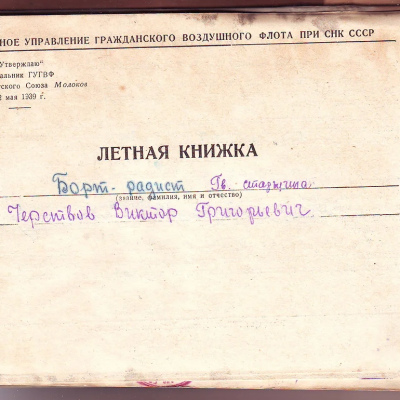 НОЕ УПРАВЛЕНИЕ ГРАЖДАНСКОГО ВОЗДУШНОГО ФЛОТА ПРИ СНК СССР
Утверждаю"
альник ГУГВФ
тского Союза Молоков
2 мая 1939 г.
ЛЕТНАЯ КНИЖКА
Борт-радист Гв. старшина
(звание, фамилия, имя и отчество)
Черствов Виктор Григорьевич